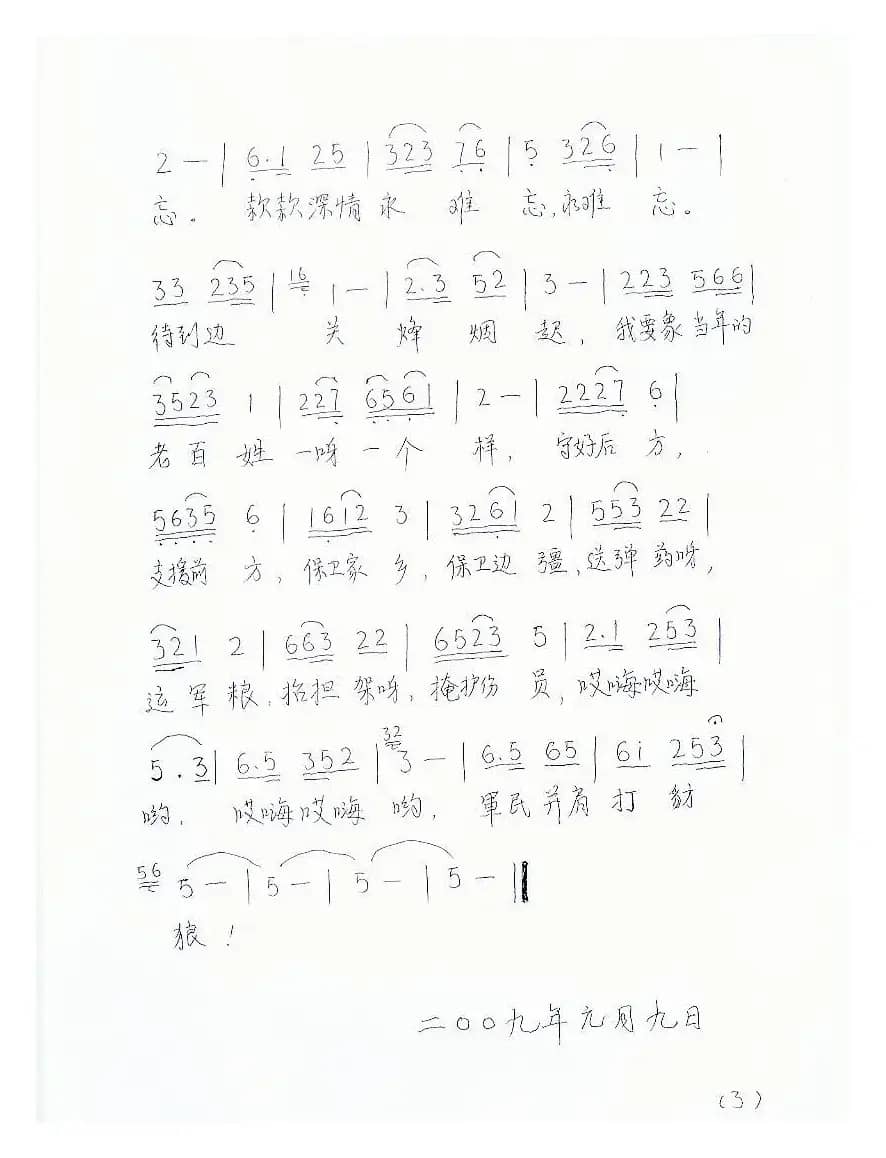 2 — | 6.1 25 | 323 76 | 5 326 | 1 — |
忘。 款款深情永 难 忘,永难 忘。
33 235 | 16 1 — | 2.3 52 | 3 — | 223 566 |
待到边 关 烽 烟 起, 我要象当年的
3523 1 | 227 6561 | 2 — | 2227 6 |
老百 姓 一呀一个 样, 守好后 方,
5635 6 | 1612 3 | 3261 2 | 553 22 |
支援前 方, 保卫家 乡, 保卫边 疆, 送弹药呀,
321 2 | 663 22 | 6523 5 | 2.1 253 |
运军 粮, 抬担架呀, 掩护伤 员, 哎嗨哎嗨
5.3 | 6.5 352 | 32 3 — | 6.5 65 | 6i 253 |
哟, 哎嗨哎嗨 哟, 軍民並肩 打 豺
56 5 — | 5 — | 5 — | 5 — ‖
狼!
二〇〇九年元月九日
(3)